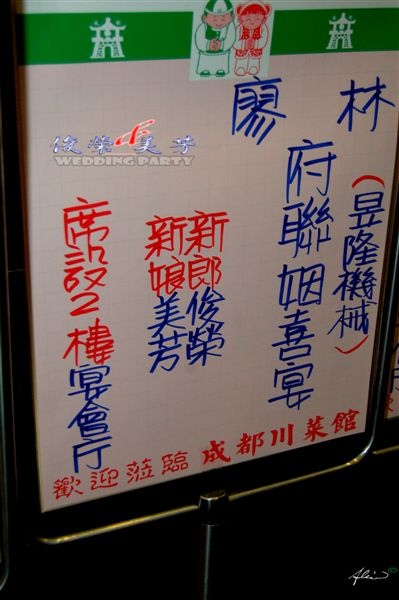 林 廖
府聯姻喜宴
(昱隆機械)
新郎俊榮
新娘美芳
席設2樓宴會厅
歡迎蒞臨 成都川菜館
俊榮&美芳
WEDDING PARTY